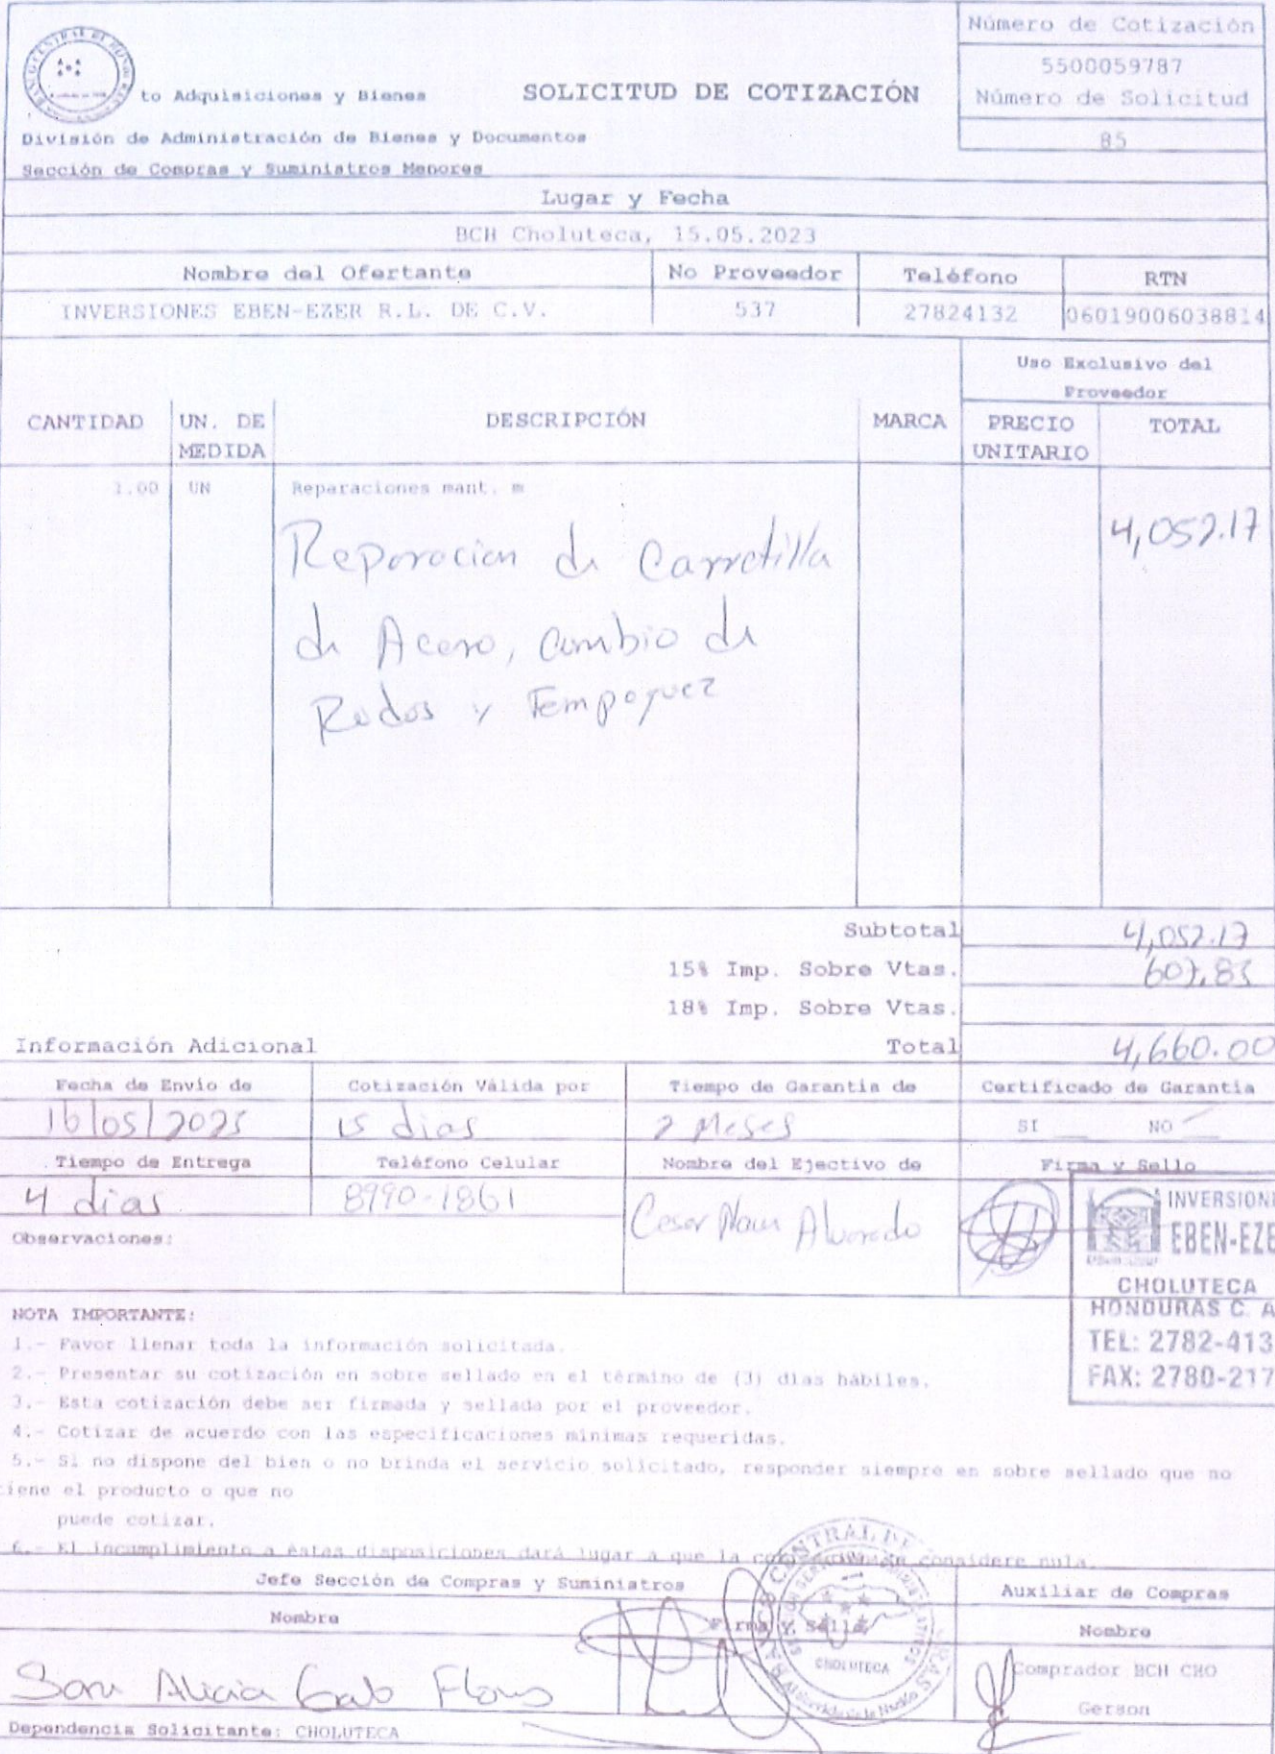 Número de Cotización
5500059787
Número de Solicitud
85
to Adquisiciones y Bienes
SOLICITUD DE COTIZACIÓN
División de Administración de Bienes y Documentos
Sección de Compras y Suministros Menores
Lugar y Fecha
BCH Choluteca, 15.05.2023
Nombre del Ofertante No Proveedor Teléfono RTN
INVERSIONES EBEN-EZER R.L. DE C.V. 537 27824132 06019006038814
Uso Exclusivo del
Proveedor
CANTIDAD UN. DE MEDIDA DESCRIPCIÓN MARCA PRECIO UNITARIO TOTAL
1.00 UN Reparaciones mant. m
Reparacion de Carretilla 4,052.17
de Acero, Cambio de
Rodos y Tempoguez
Subtotal 4,052.17
15% Imp. Sobre Vtas. 607.83
18% Imp. Sobre Vtas.
Información Adicional
Total 4,660.00
Fecha de Envio de Cotización Válida por Tiempo de Garantia de Certificado de Garantia
16/05/2023 15 dias 2 Meses SI NO
Tiempo de Entrega Teléfono Celular Nombre del Ejectivo de Firma y Sello
4 dias 8990-1861 Cesar Alvarado
Observaciones:
INVERSION
EBEN-EZE
CHOLUTECA
HONDURAS C. A
TEL: 2782-413
FAX: 2780-217
NOTA IMPORTANTE:
1.- Favor llenar toda la información solicitada.
2.- Presentar su cotización en sobre sellado en el término de (3) dias hábiles.
3.- Esta cotización debe ser firmada y sellada por el proveedor.
4.- Cotizar de acuerdo con las especificaciones minimas requeridas.
5.- Si no dispone del bien o no brinda el servicio solicitado, responder siempre en sobre sellado que no
iene el producto o que no
puede cotizar.
6.- El incumplimiento a éstas disposiciones dará lugar a que la cotización se considere nula.
Jefe Sección de Compras y Suministros Auxiliar de Compras
Nombre Firma y Sello Nombre
Alicia Flores
CHOLUTECA
Comprador BCH CHO
Gerson
Dependencia Solicitante: CHOLUTECA